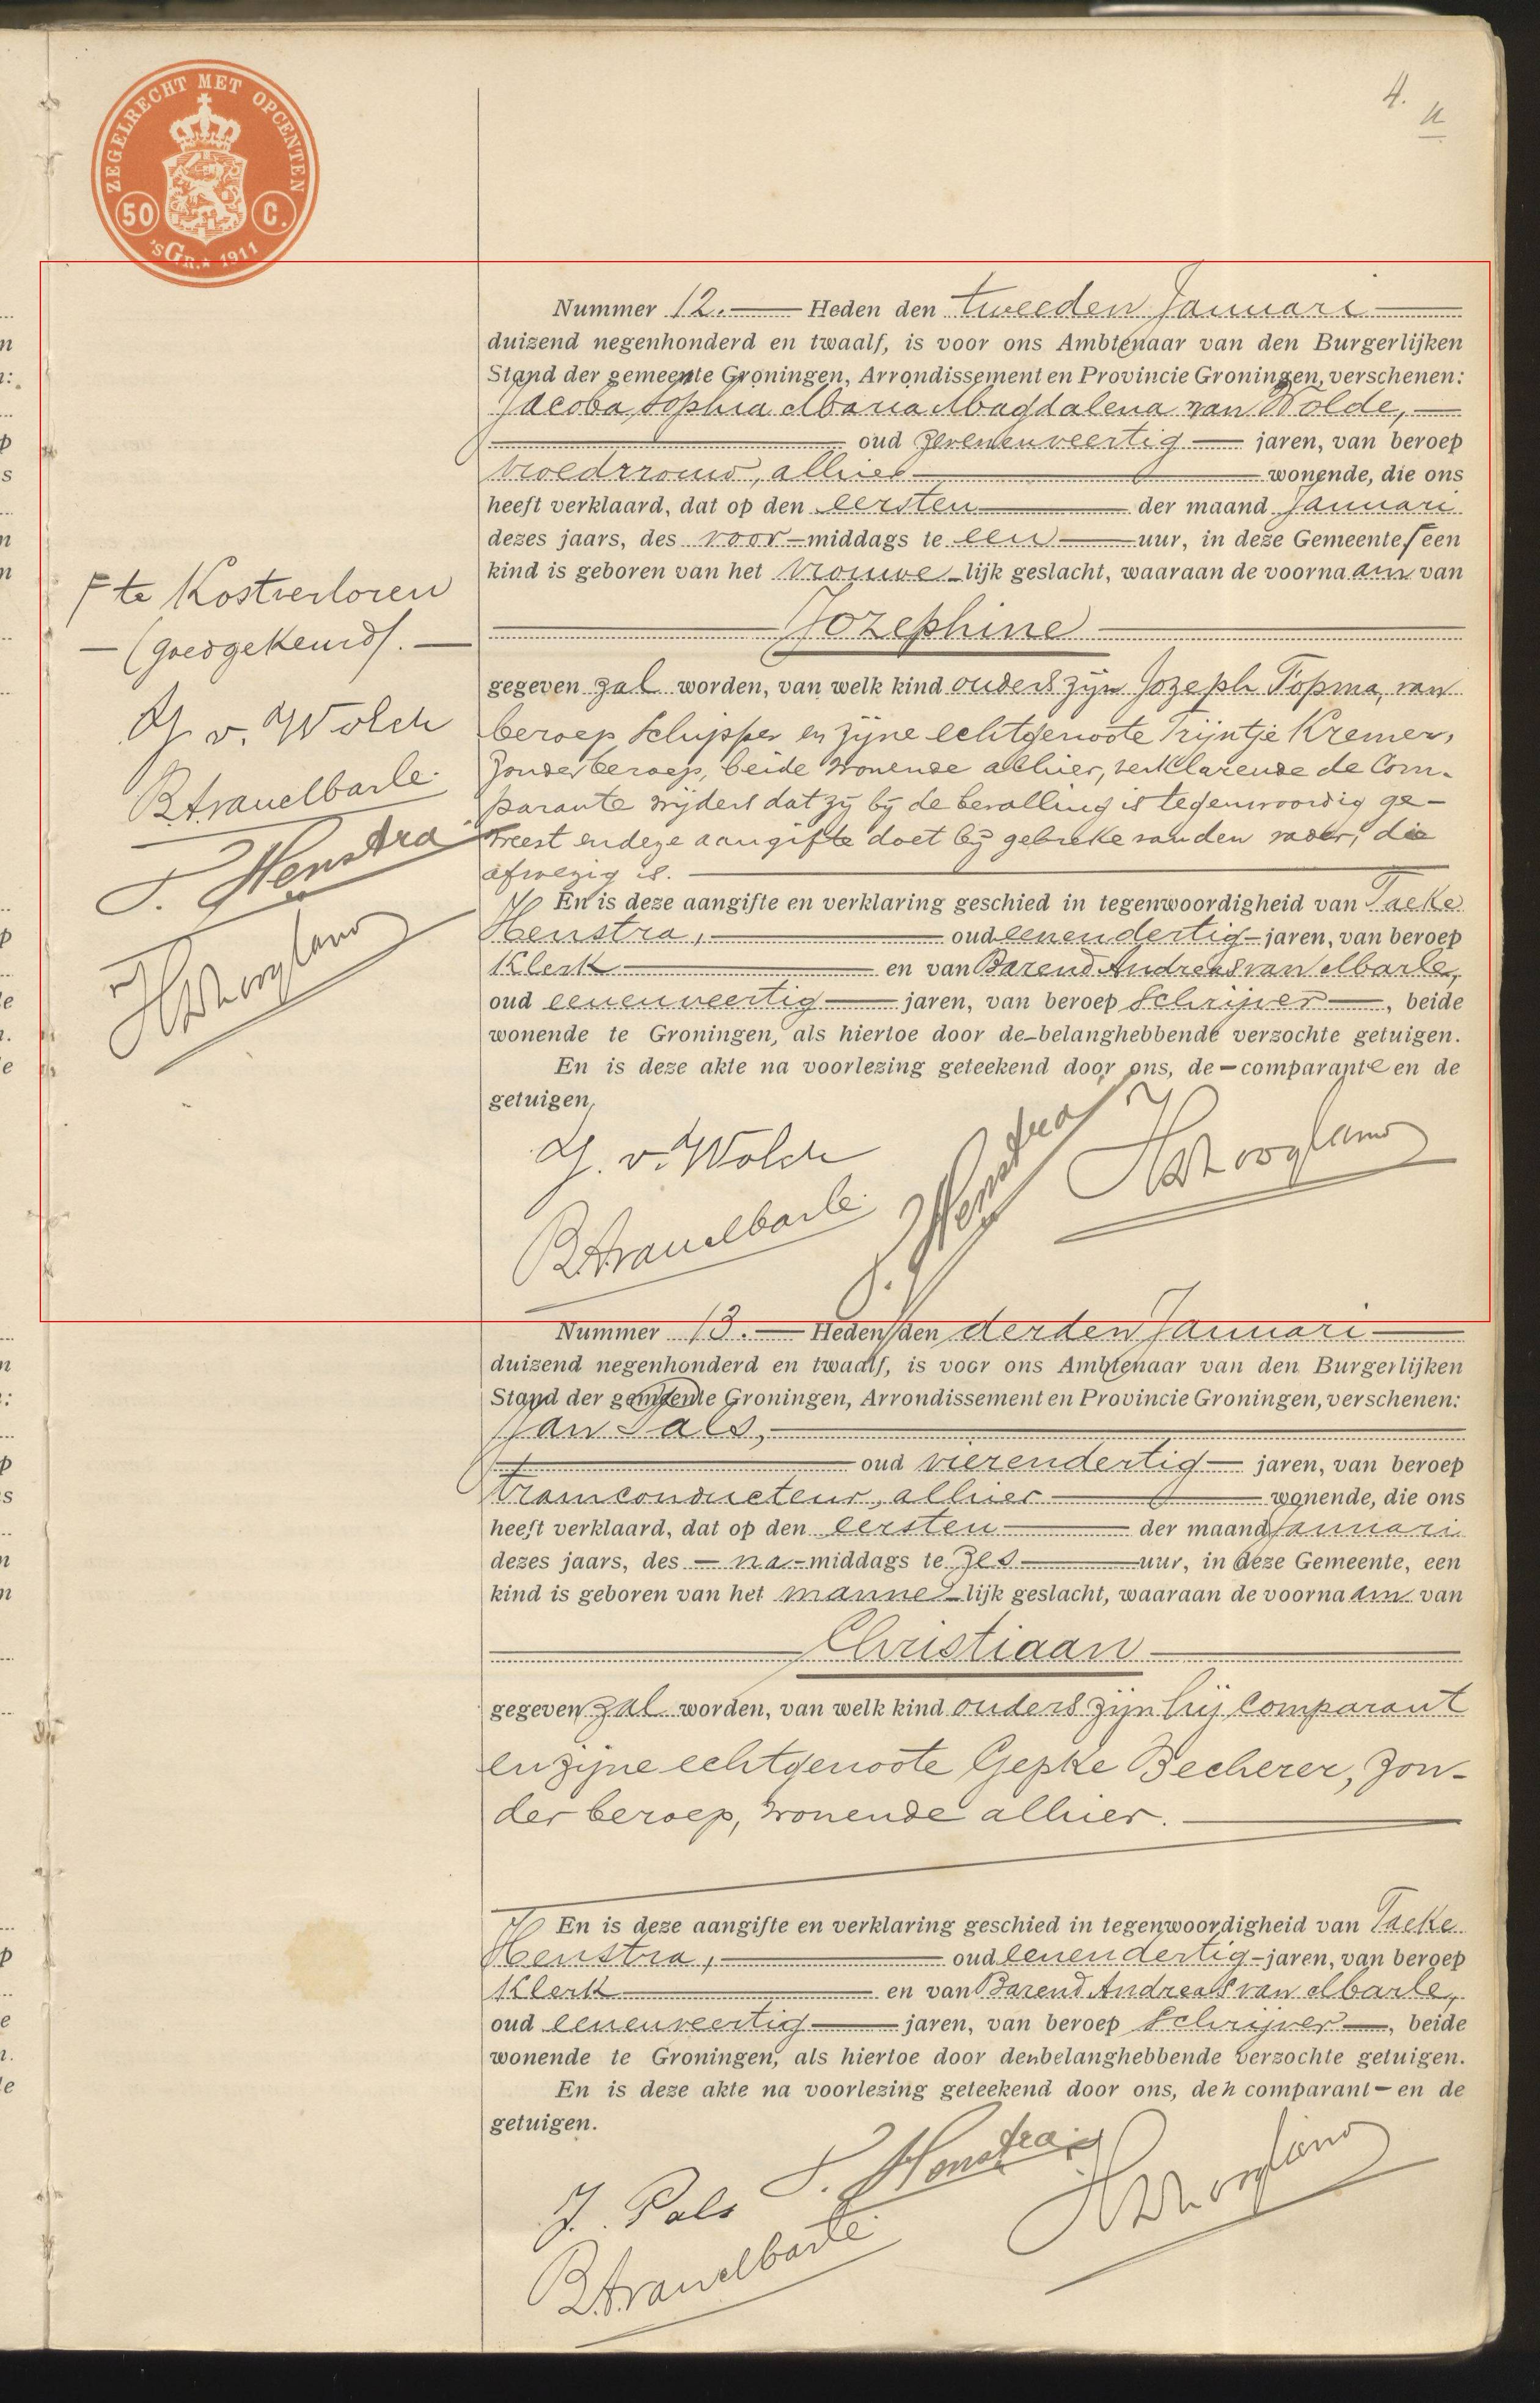 4.
ZEGELRECHT MET OPCENTEN
50 C.
'sGR. 1911
Nummer 12. Heden den tweeden Januari
duizend negenhonderd en twaalf, is voor ons Ambtenaar van den Burgerlijken
Stand der gemeente Groningen, Arrondissement en Provincie Groningen, verschenen:
Jacoba Sophia Maria Magdalena van Wolde,
oud zevenenveertig jaren, van beroep
vroedvrouw, alhier wonende, die ons
heeft verklaard, dat op den eersten der maand Januari
dezes jaars, des voor-middags te een uur, in deze Gemeente een
kind is geboren van het vrouwe-lijk geslacht, waaraan de voornaam van
Jozephine
gegeven zal worden, van welk kind ouders zijn Jozeph Topma, van
beroep schipper en zijne echtgenoote Trijntje Kremer,
zonder beroep, beide wonende alhier, verklarende de Com-
parante wijders dat zij bij de bevalling is tegenwoordig ge-
weest en deze aangifte doet bij gebreke van den vader, die
afwezig is.
En is deze aangifte en verklaring geschied in tegenwoordigheid van Taeke
Henstra, oud eenendertig jaren, van beroep
Klerk en van Barend Andreas van Marle,
oud eenenveertig jaren, van beroep Schrijver, beide
wonende te Groningen, als hiertoe door de-belanghebbende verzochte getuigen.
En is deze akte na voorlezing geteekend door ons, de-comparante en de
getuigen.
J. v. Wolde
B.A. van Marle
T. Henstra
Hoogland
te Kostverloren
(goedgekeurd).
J. v. Wolde
B.A. van Marle
T. Henstra
Hoogland
Nummer 13. Heden den derden Januari
duizend negenhonderd en twaalf, is voor ons Ambtenaar van den Burgerlijken
Stand der gemeente Groningen, Arrondissement en Provincie Groningen, verschenen:
Jan Pals,
oud vierendertig jaren, van beroep
tramconducteur, alhier wonende, die ons
heeft verklaard, dat op den eersten der maand Januari
dezes jaars, des na-middags te zes uur, in deze Gemeente, een
kind is geboren van het manne-lijk geslacht, waaraan de voornaam van
Christiaan
gegeven zal worden, van welk kind ouders zijn hij Comparant
en zijne echtgenoote Gepke Becherer, zon-
der beroep, wonende alhier.
En is deze aangifte en verklaring geschied in tegenwoordigheid van Taeke
Henstra, oud eenendertig-jaren, van beroep
Klerk en van Barend Andreas van Marle,
oud eenenveertig jaren, van beroep Schrijver, beide
wonende te Groningen, als hiertoe door den belanghebbende verzochte getuigen.
En is deze akte na voorlezing geteekend door ons, den comparant- en de
getuigen.
J. Pals
T. Henstra
B.A. van Marle
Hoogland